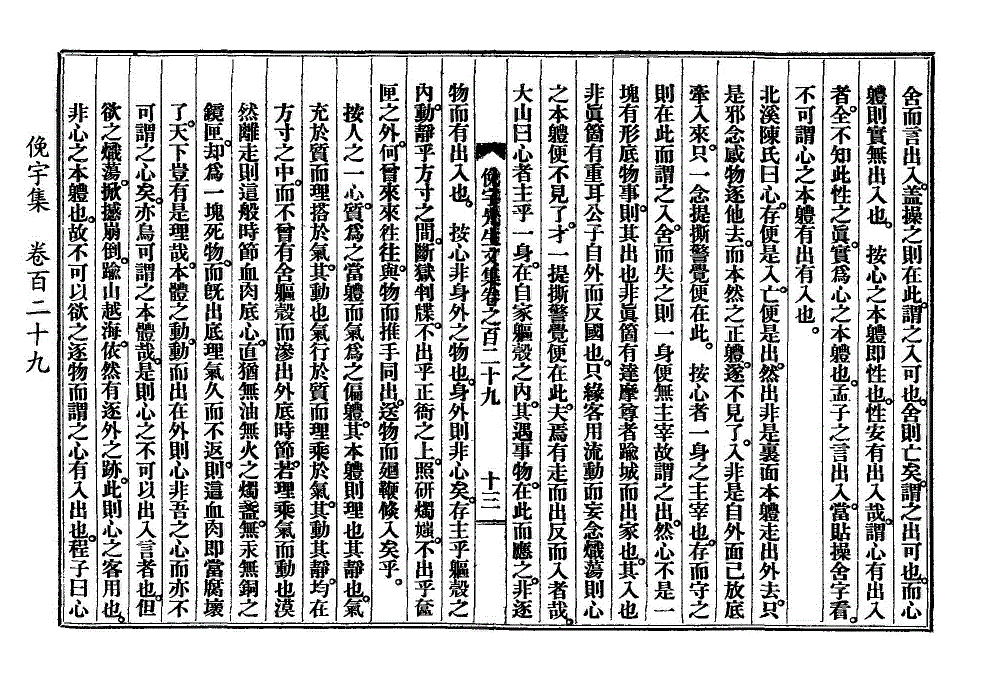 舍而言出入。盖操之則在此。謂之入可也。舍則亡矣。謂之出可也。而心
軆則實無出入也。　按心之本軆即性也。性安有出入哉。謂心有出入
者。全不知此性之眞實爲心之本軆也。孟子之言出入。當貼操舍字看。
不可謂心之本軆有出有入也。
北溪陳氏曰心。存便是入。亡便是出。然出非是裏面本軆走出外去。只
是邪念感物逐他去。而本然之正軆。遂不見了。入非是自外面已放底
牽入來。只一念提撕警覺便在此。　按心者一身之主宰也。存而守之
則在此而謂之入。舍而失之則一身便無主宰故謂之出。然心不是一
塊有形底物事。則其出也非眞箇有達摩尊者踰城而出家也。其入也
非眞箇有重耳公子自外而反國也。只緣客用流動而妄念熾蕩則心
之本軆便不見了。才一提撕警覺便在此。夫焉有走而出反而入者哉。
大山曰心者主乎一身。在自家軀殼之内。其遇事物。在此而應之。非逐
俛宇先生文集卷之百二十九　十三
物而有出入也。　按心非身外之物也。身外則非心矣。存主乎軀殼之
内。動靜乎方寸之間。斷獄判牒。不出乎正衙之上。照硏燭媸。不出乎奩
匣之外。何嘗來來往往。與物而推手同出。送物而廻鞭倏入矣乎。
按人之一心。質爲之當軆而氣爲之偏軆。其本軆則理也。其靜也。氣
充於質而理搭於氣。其動也氣行於質而理乘於氣。其動其靜。均在
方寸之中。而不曾有舍軀殼而滲出外底時節。若理乘氣而動也漠
然離走則這般時節血肉底心。直猶無油無火之燭盞。無汞無銅之
鏡匣。却爲一塊死物。而旣出底理氣久而不返。則這血肉即當腐壞
了。天下豈有是理哉。本體之動。動而出在外則心非吾之心。而亦不
可謂之心矣。亦烏可謂之本體哉。是則心之不可以出入言者也。但
欲之熾蕩。掀撼崩倒。踰山越海。依然有逐外之跡。此則心之客用也。
非心之本軆也。故不可以欲之逐物而謂之心有入出也。程子曰心
俛宇集　卷百二十九